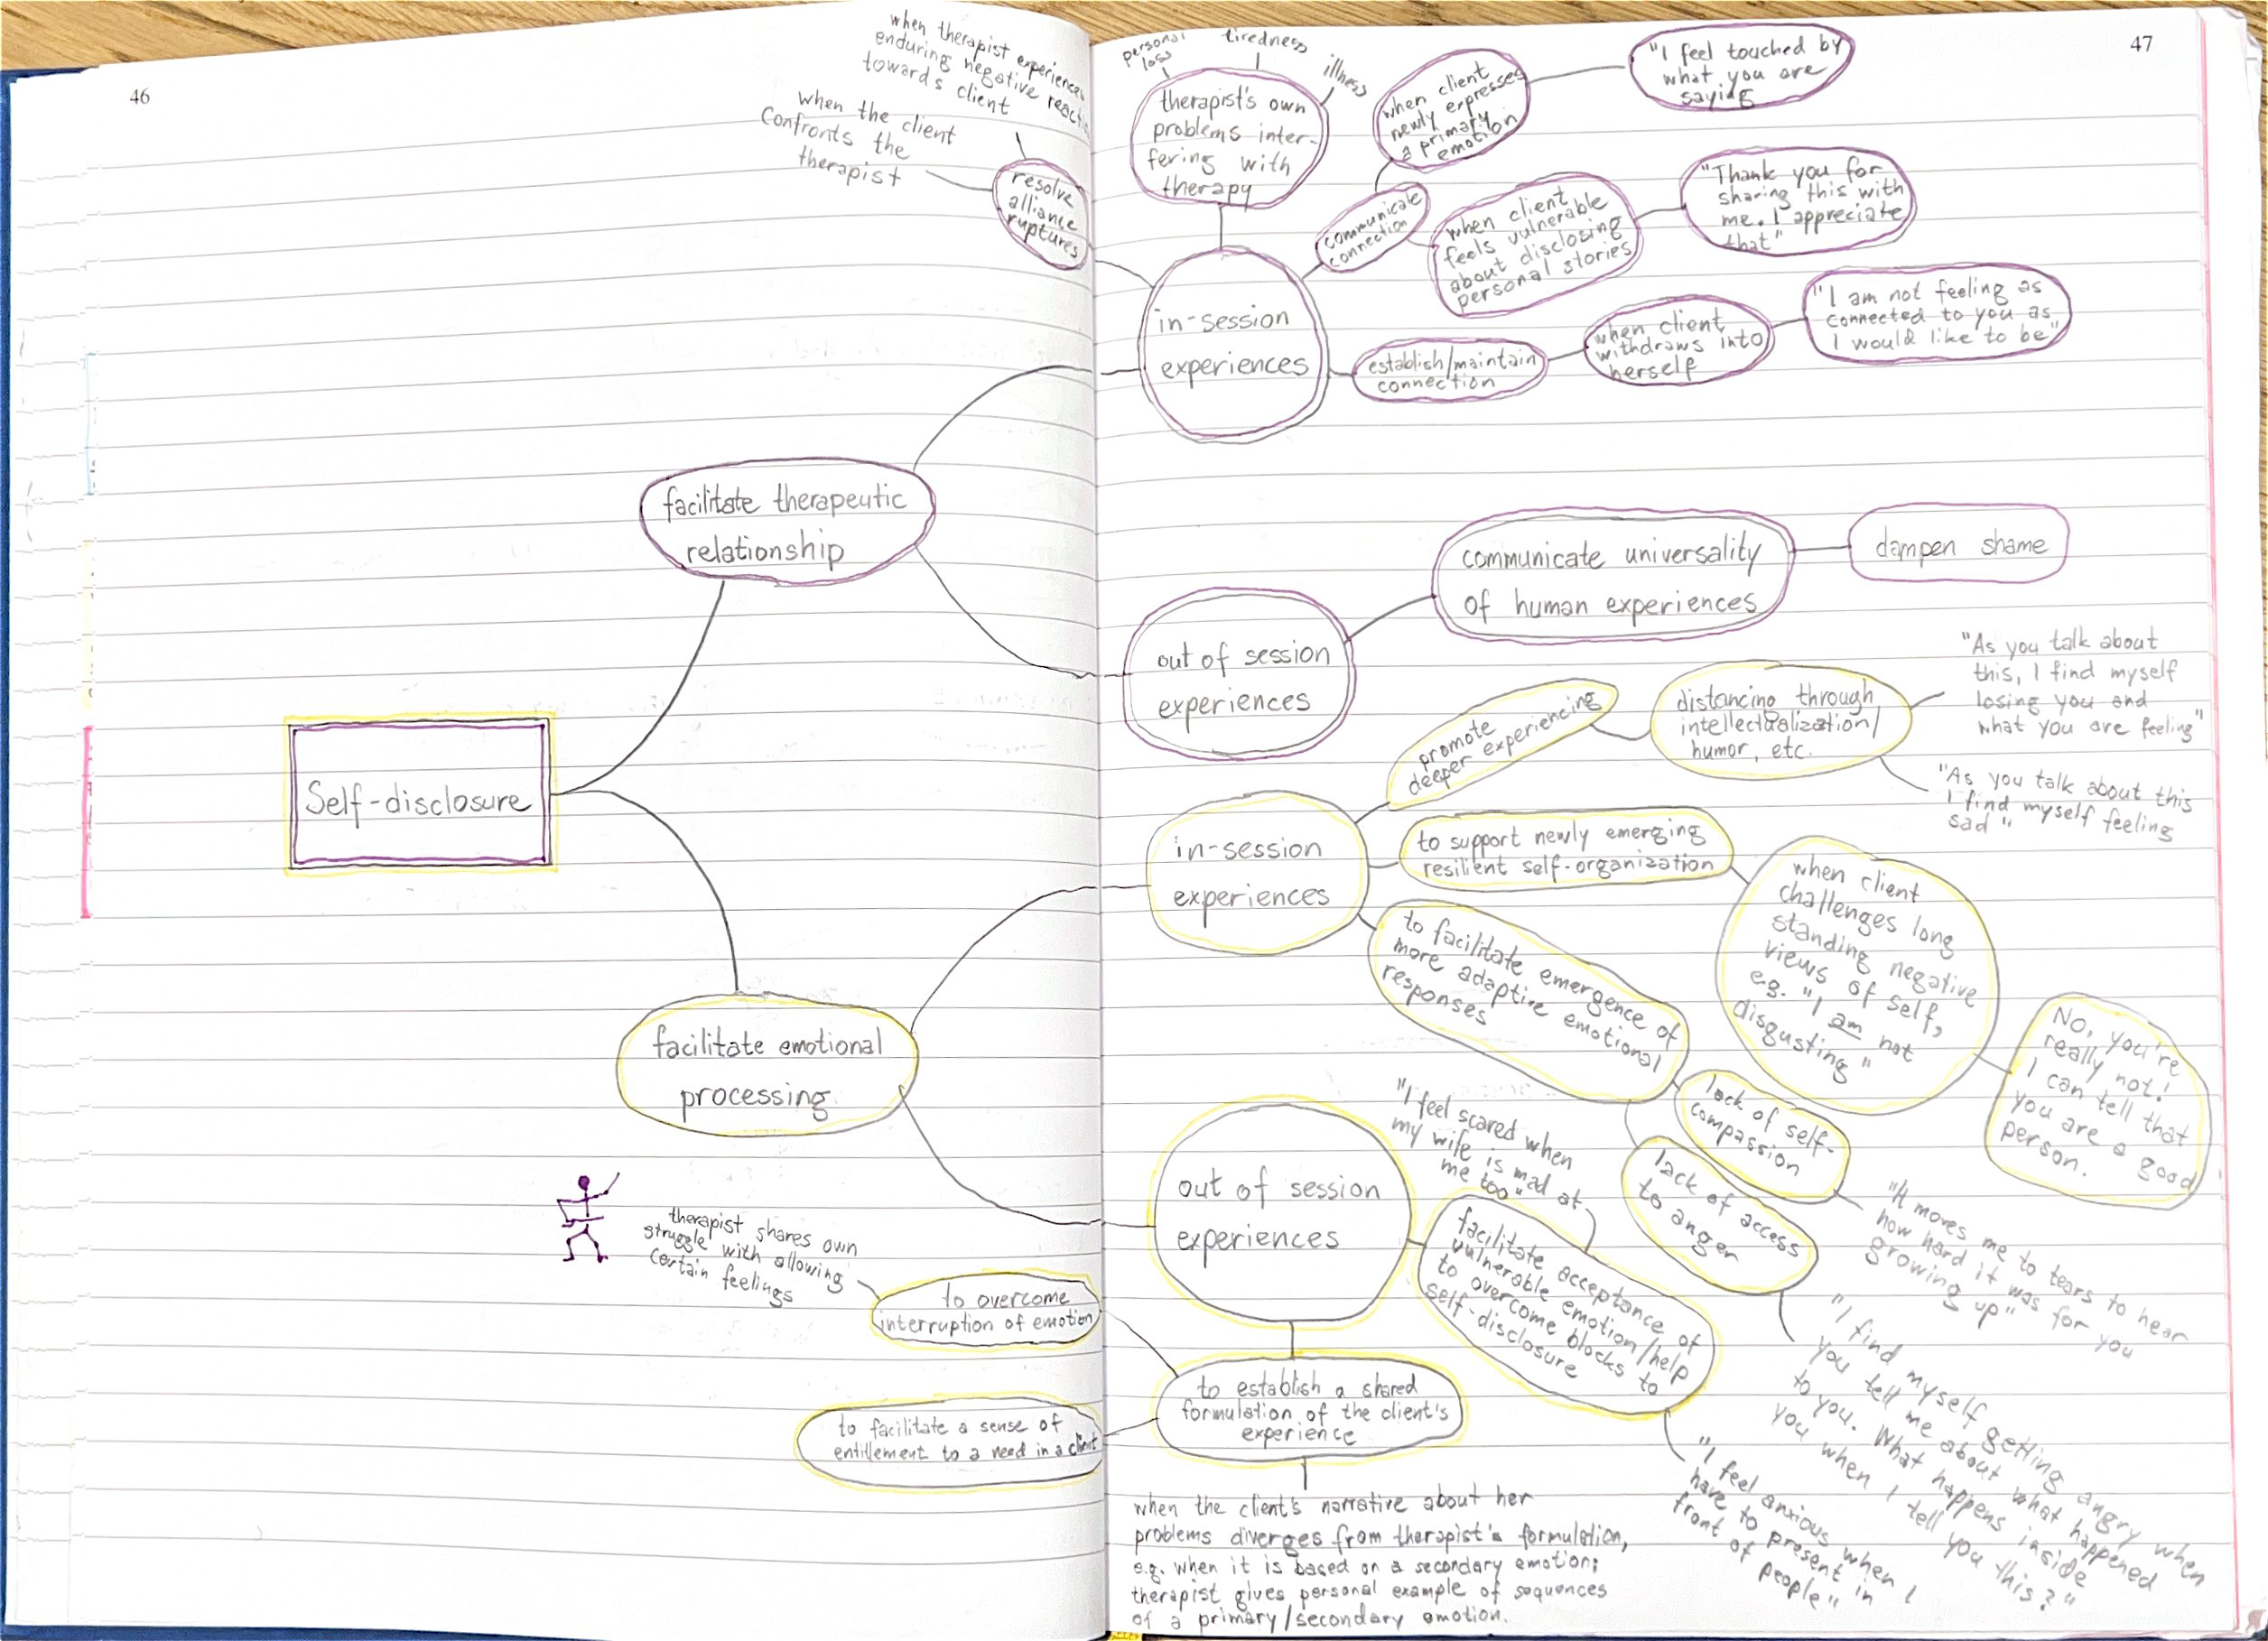 46
when therapist experiences
enduring negative reacti
towards client
when the client
confronts the
therapist
resolve
alliance
ruptures
facilitate therapeutic
relationship
Self-disclosure
facilitate emotional
processing
therapist shares own
struggle with allowing
certain feelings
to overcome
interruption of emotion
to facilitate a sense of
entitlement to a need in a client
47
personal
loss
tiredness
illness
therapist's own
problems inter-
fering with
therapy
when client
newly expresses
a primary
emotion
"I feel touched by
what you are
saying
communicate
connection
when client
feels vulnerable
about disclosing
personal stories
"Thank you for
sharing this with
me. I appreciate
that"
in-session
experiences
establish/maintain
connection
when client
withdraws into
herself
"I am not feeling as
connected to you as
I would like to be"
out of session
experiences
communicate universality
of human experiences
dampen shame
in-session
experiences
promote
deeper experiencing
distancing through
intellectualization/
humor, etc.
"As you talk about
this, I find myself
losing you and
what you are feeling"
"As you talk about this
I find myself feeling
sad"
to support newly emerging
resilient self-organization
when client
challenges long
standing negative
views of self,
e.g. "I am not
disgusting"
NO, you're
really not!
I can tell that
you are a good
person.
to facilitate emergence of
more adaptive emotional
responses
lack of self-
compassion
"It moves me to tears to hear
how hard it was for you
growing up"
lack of access
to anger
"I find myself getting angry when
you tell me about what happened
to you. What happens inside
you when I tell you this?"
out of session
experiences
"I feel scared when
my wife is mad at
me too"
facilitate acceptance of
vulnerable emotion/help
to overcome blocks to
self-disclosure
"I feel anxious when I
have to present in
front of people"
to establish a shared
formulation of the client's
experience
when the client's narrative about her
problems diverges from therapist's formulation,
e.g. when it is based on a secondary emotion;
therapist gives personal example of sequences
of a primary/secondary emotion.